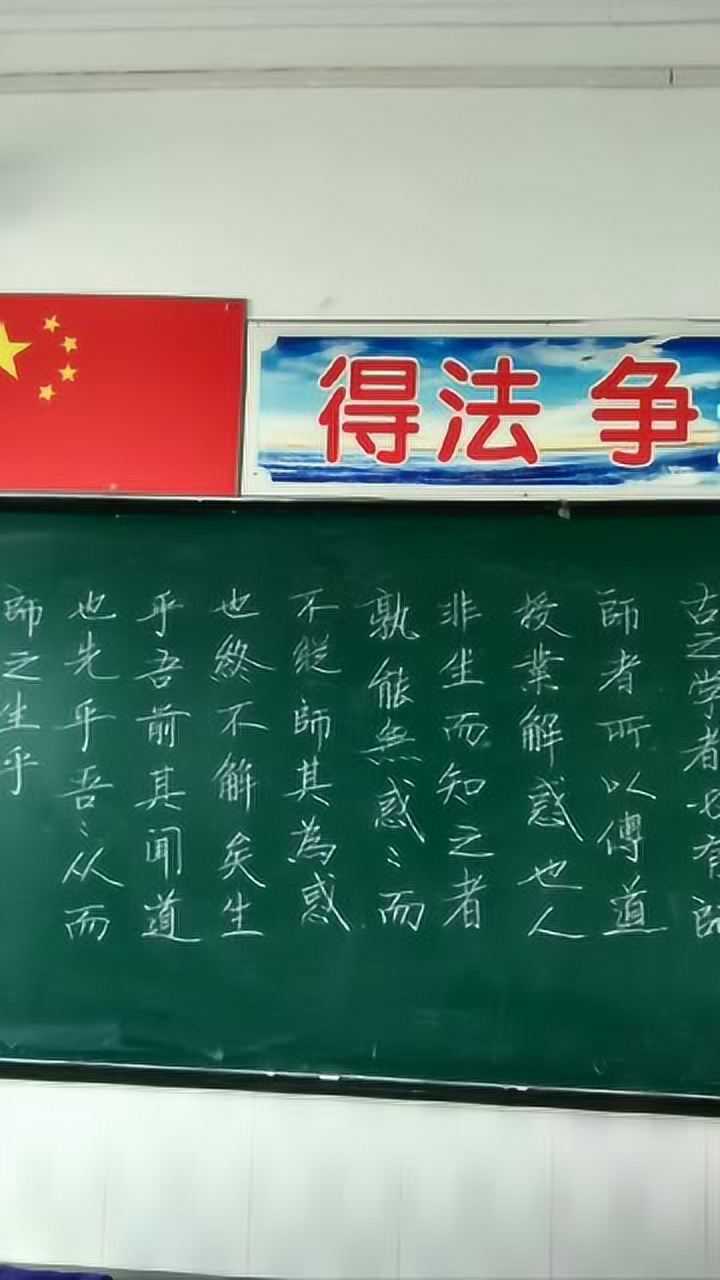 得法 争
古之学者必有師
師者所以傳道
授業解惑也人
非生而知之者
孰能無惑〻而
不從師其為惑
也終不解矣生
乎吾前其聞道
也先乎吾〻从而
師之生乎